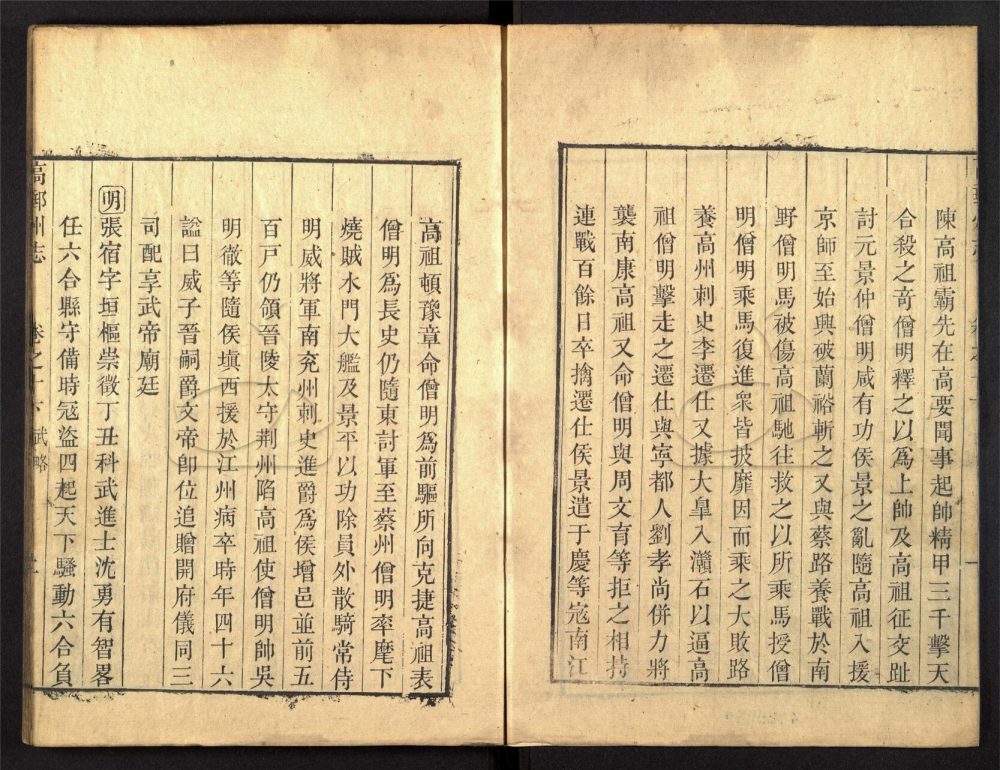 陳高祖霸先在高要聞事起帥精甲三千擊天
合殺之竒僧明釋之以爲上帥及高祖征交趾
討元景仲僧明咸有功侯景之亂隨高祖入援
京師至始興破蘭裕斬之又與蔡路養戰於南
野僧明馬被傷高祖馳往救之以所乘馬授僧
明僧明乘馬復進衆皆披靡因而乘之大敗路
養高州刺史李遷仕又據大臯入灨石以逼高
祖僧明擊走之遷仕與寧都人劉孝尚併力將
襲南康高祖又命僧明與周文育等拒之相持
連戰百餘日卒擒遷仕侯景遣于慶等寇南江
高祖頓豫章命僧明爲前驅所向克捷高祖表
僧明爲長史仍隨東討軍至蔡州僧明率麾下
燒賊水門大艦及景平以功除員外散騎常侍
明威將軍南兖州刺史進爵爲侯增邑並前五
百戸仍領晉陵太守荆州陷高祖使僧明帥吳
明徹等隨侯塡西援於江州病卒時年四十六
諡曰威子晉嗣爵文帝卽位追贈開府儀同三
司配享武帝廟廷
明張宿字垣樞崇徵丁丑科武進士沈勇有智畧
任六合縣守備時寇盜四起天下騷動六合負
高郵州志 卷之十下 武略